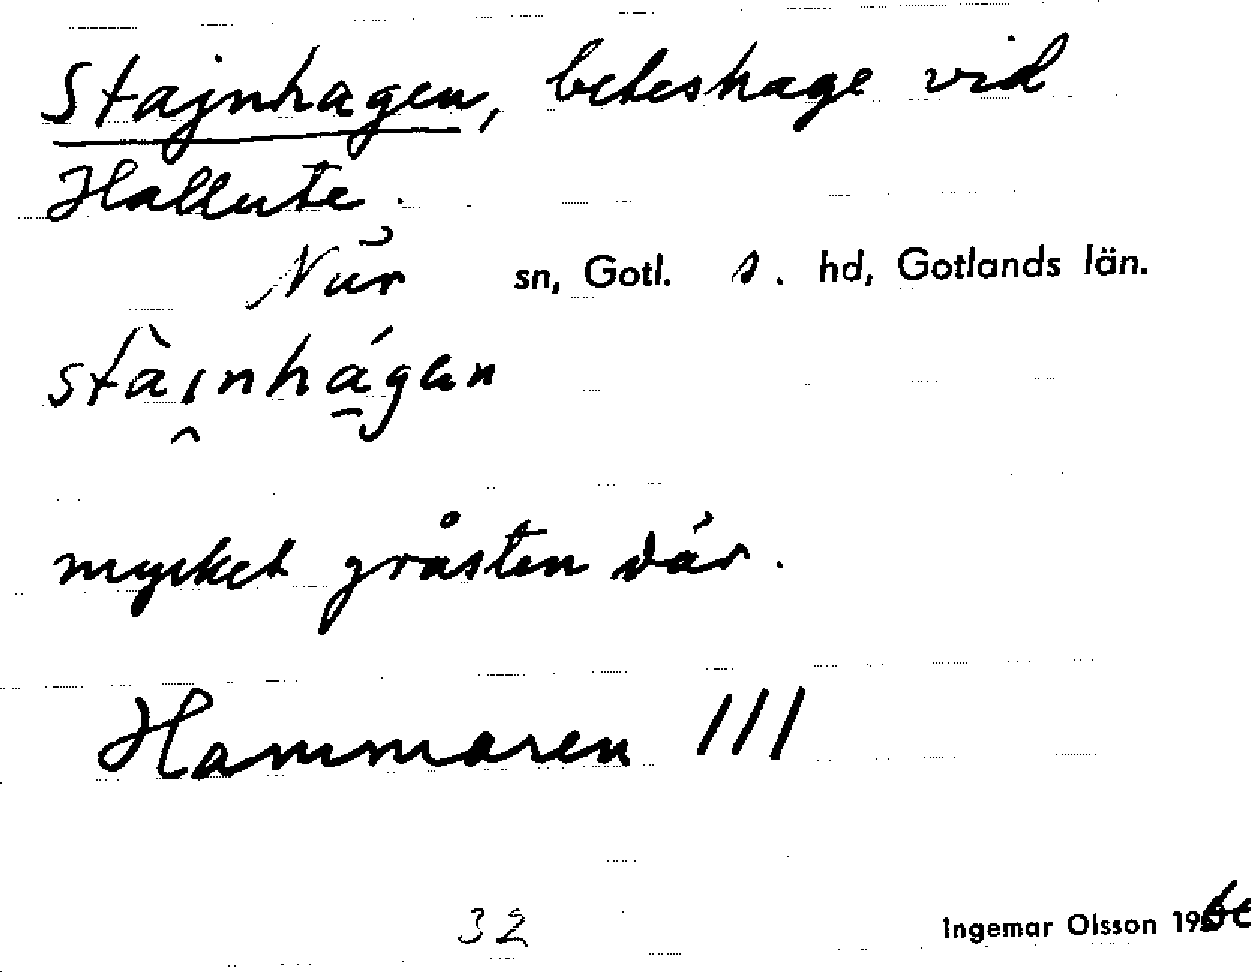 Stajnhagen, beteshage vid
Hallute.
När sn, Gotl. s. hd, Gotlands län.
stàınhágen
mycket gråsten där.
Hammaren III
32
Ingemar Olsson 19